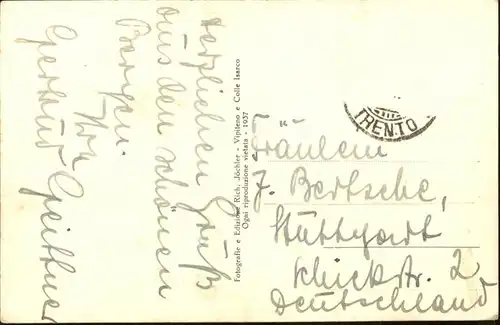 Herzlichen Gruß
aus den schönen
Bergen.
Ihre
Gertrud Greittner
Fotografie e Edizione Rich. Jöchler - Vipiteno e Colle Isarco
Ogni riproduzione vietata - 1937
TRENTO
Fräulein
J. Bertsche,
Stuttgart
Schickstr. 2
Deutschland